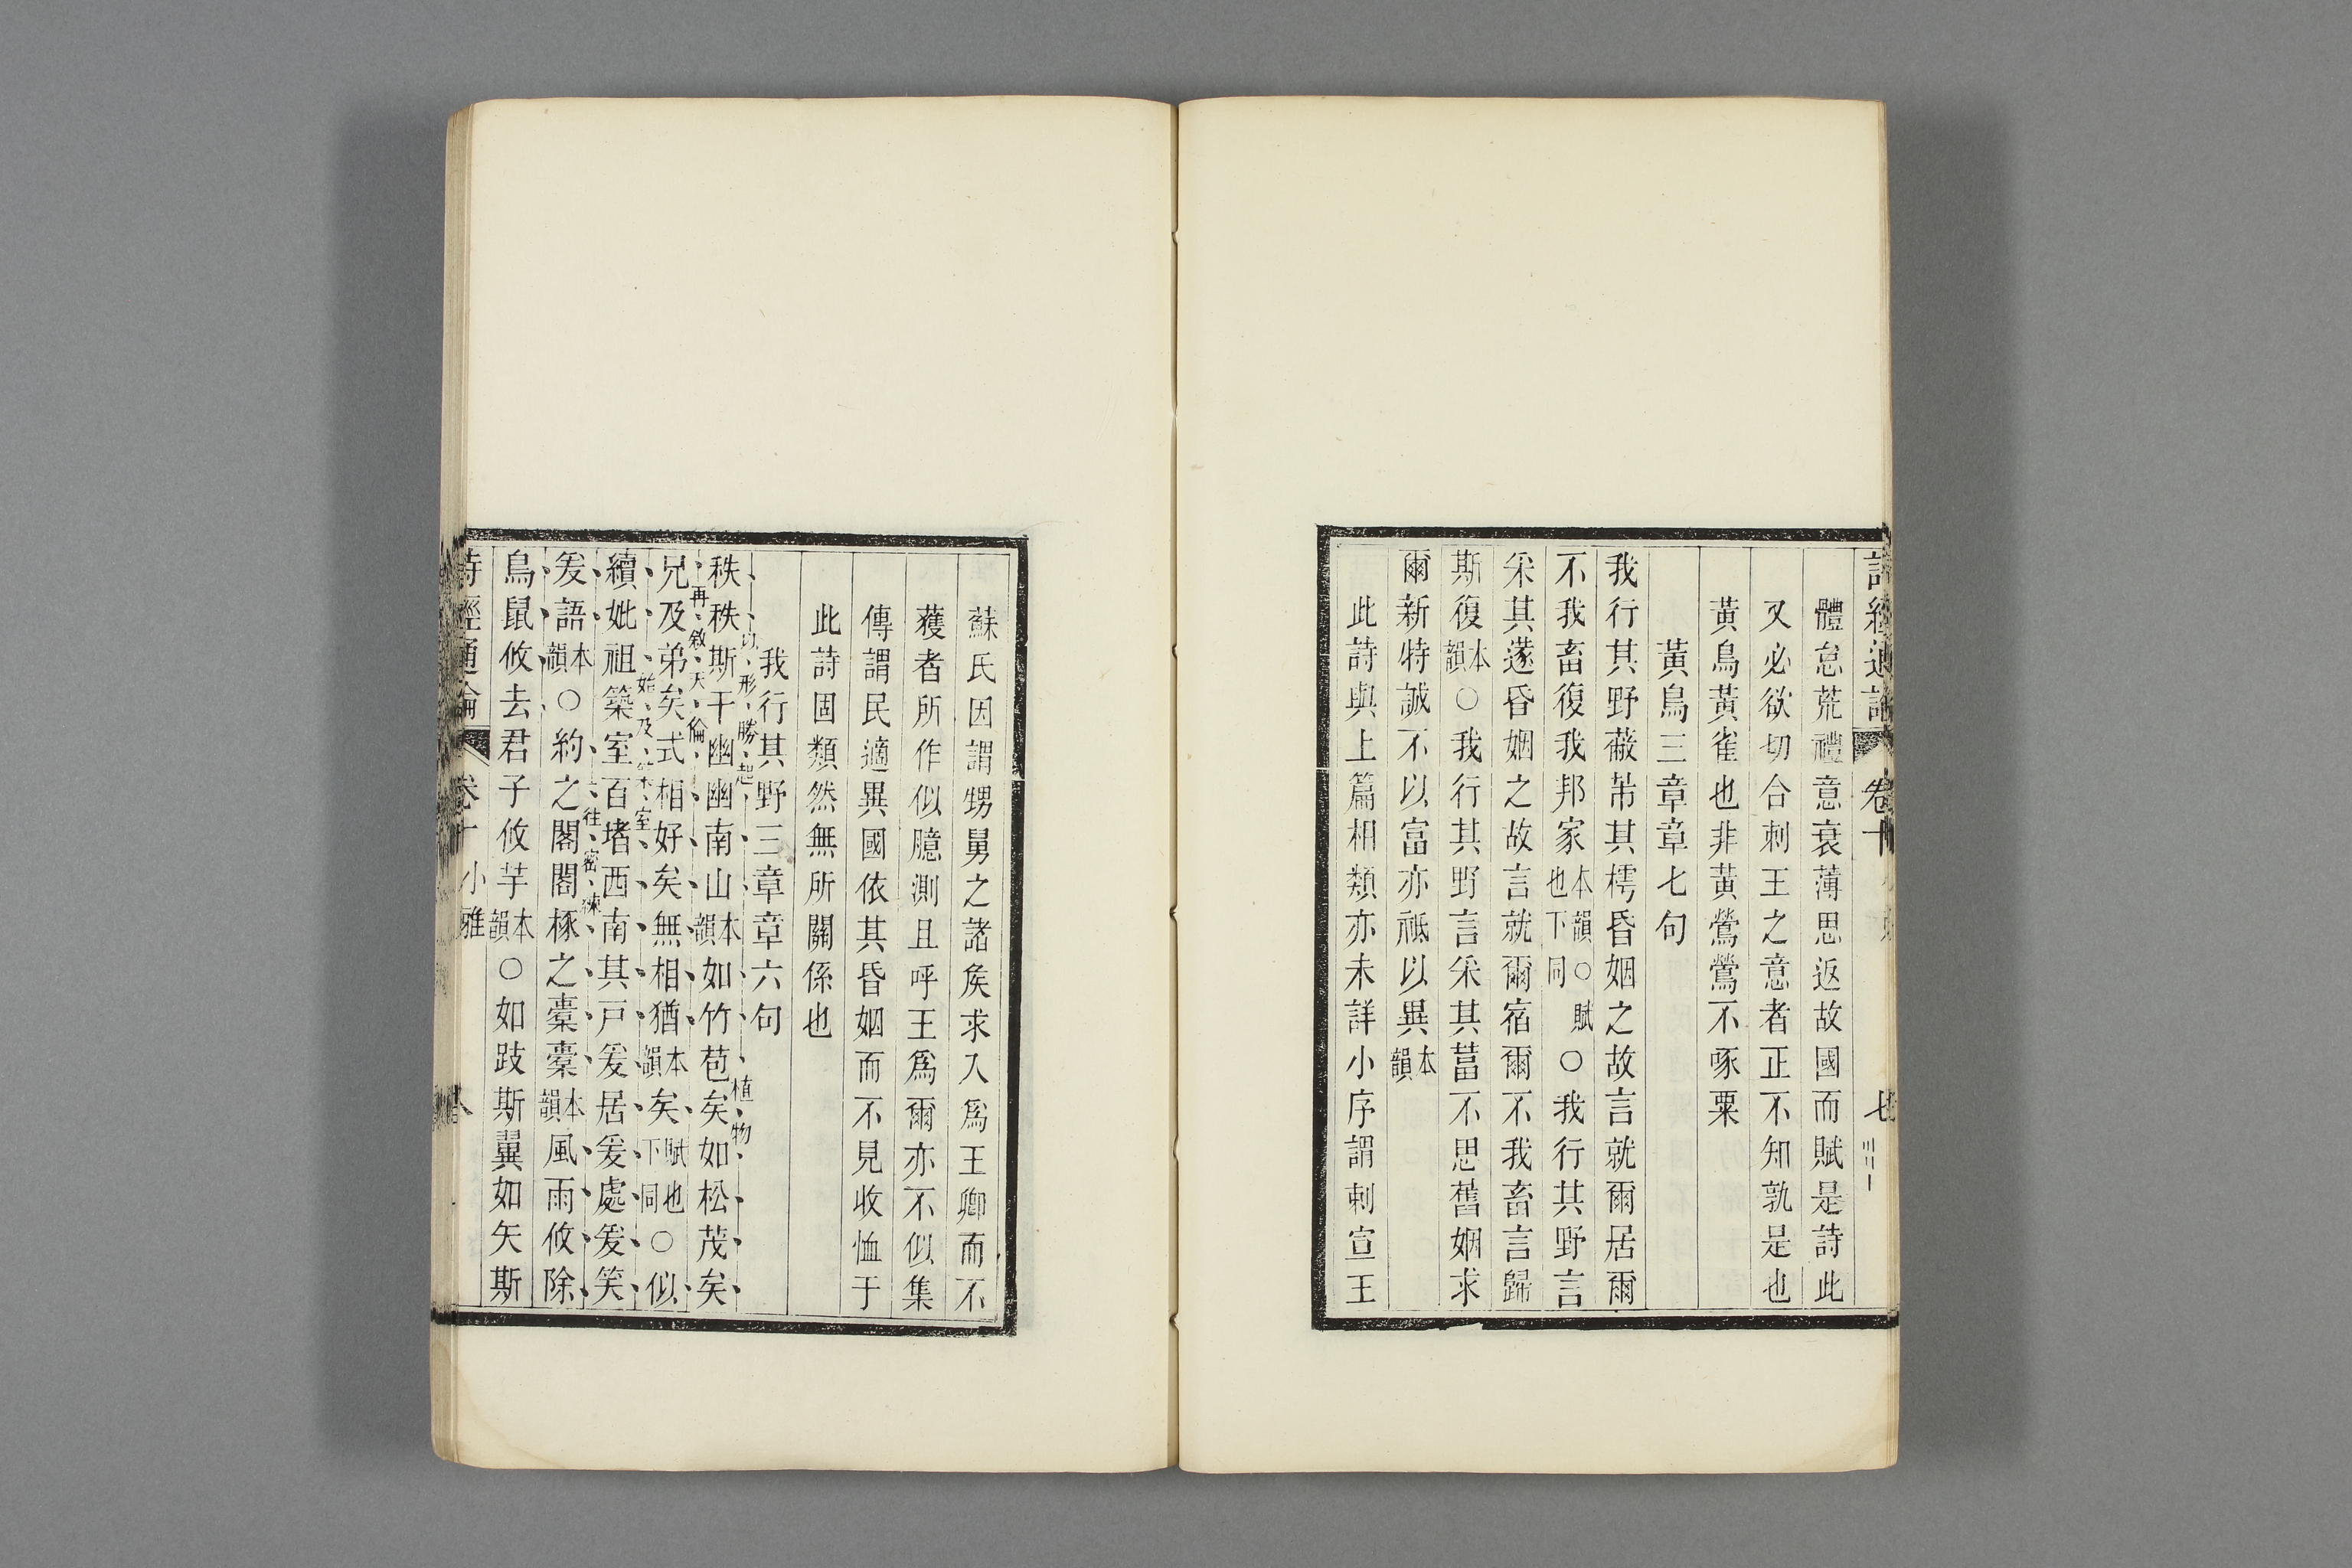 詩經通論 卷十 七
體怠荒禮意衰薄思返故國而賦是詩此
又必欲切合刺王之意者正不知孰是也
黃鳥黃雀也非黃鶯鶯不啄粟
黃鳥三章章七句
我行其野蔽芾其樗昏姻之故言就爾居爾
不我畜復我邦家本韻○賦也下同○我行其野言
采其蓫昏姻之故言就爾宿爾不我畜言歸
斯復本韻○我行其野言采其葍不思舊姻求
爾新特誠不以富亦祗以異本韻
此詩與上篇相類亦未詳小序謂刺宣王
蘇氏因謂甥舅之諸矦求入爲王卿而不
獲者所作似臆測且呼王爲爾亦不似集
傳謂民適異國依其昏姻而不見收恤于
此詩固類然無所關係也
我行其野三章章六句
以形勝起 植物
秩秩斯干幽幽南山本韻如竹苞矣如松茂矣
再敘天倫
兄及弟矣式相好矣無相猶本韻矣賦也下同○似
始及築室
續妣祖築室百堵西南其戶爰居爰處爰笑
往密緻
爰語本韻○約之閣閣椓之橐橐本韻風雨攸除
鳥鼠攸去君子攸芋本韻○如跂斯翼如矢斯
詩經通論 卷十 小雅 八